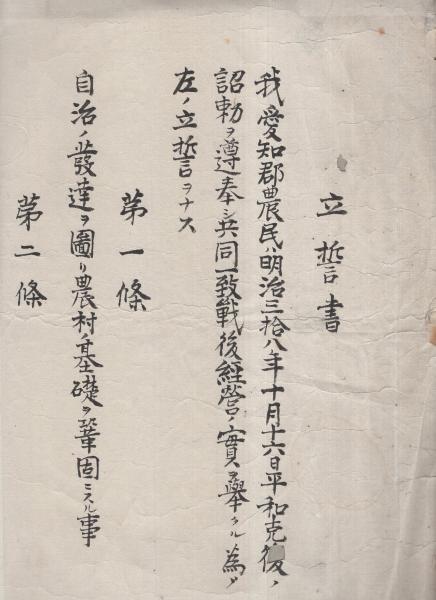 立誓書
我愛知郡農民ハ明治三拾八年十月十六日平和克復ノ
詔勅ヲ遵奉シ共同一致戰後經營ノ實ヲ舉クル為メ
左ノ立誓ヲナス
第一條
自治ノ發達ヲ圖リ農村ノ基礎ヲ鞏固ニスル事
第二條